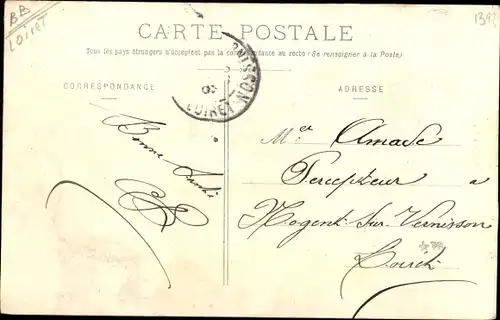 BB
LOIRET
139
CARTE POSTALE
Tous les pays étrangers n'acceptent pas la correspondance au recto (Se renseigner à la Poste)
CORRESPONDANCE
ADRESSE
LOIRET
Bonne Santé
Mr Amade
Percepteur à
Nogent-sur-Vernisson
Loiret